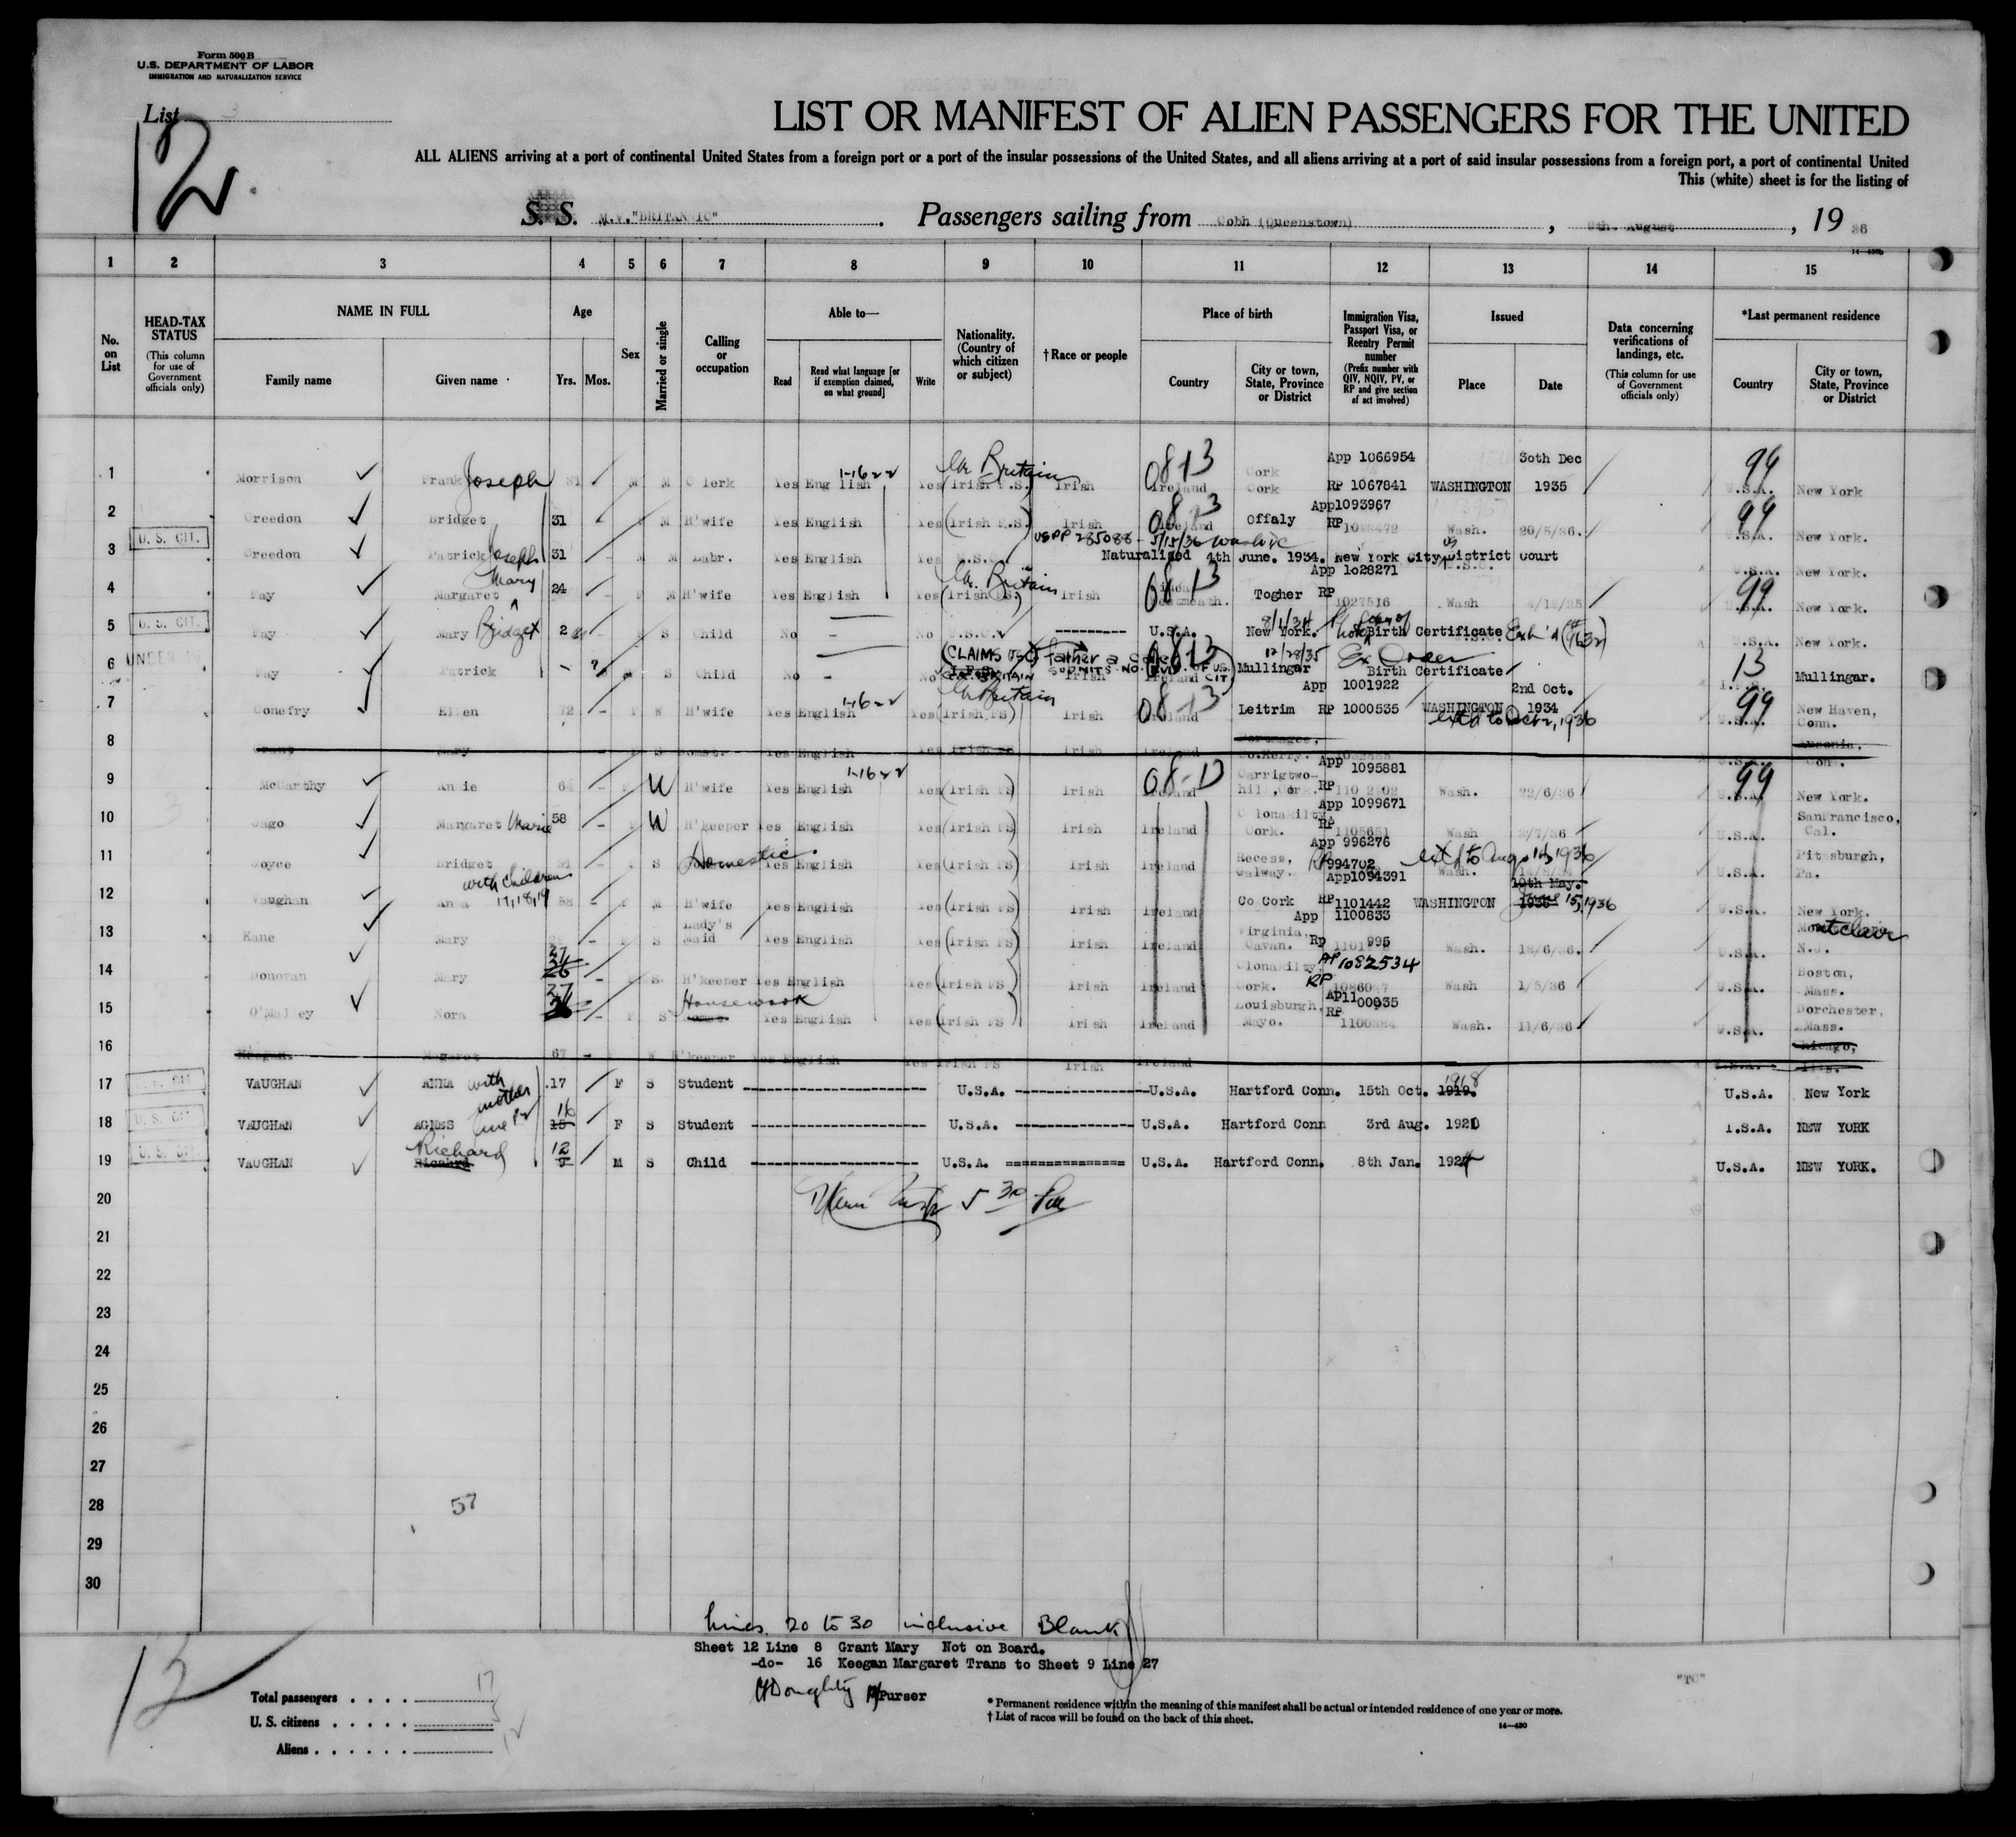 Form 500 B
U.S. DEPARTMENT OF LABOR
IMMIGRATION AND NATURALIZATION SERVICE
List 3
12
LIST OR MANIFEST OF ALIEN PASSENGERS FOR THE UNITED
ALL ALIENS arriving at a port of continental United States from a foreign port or a port of the insular possessions of the United States, and all aliens arriving at a port of said insular possessions from a foreign port, a port of continental United
This (white) sheet is for the listing of
S. S. M.V."BRITANNIC". Passengers sailing from Cobh (Queenstown), 9th. August, 19 36
1 2 3 4 5 6 7 8 9 10 11 12 13 14 15
No. on List
HEAD-TAX STATUS (This column for use of Government officials only)
NAME IN FULL Family name Given name
Age Yrs. Mos.
Sex
Married or single
Calling or occupation
Able to— Read Read what language [or if exemption claimed, on what ground] Write
Nationality. (Country of which citizen or subject)
†Race or people
Place of birth Country City or town, State, Province or District
Immigration Visa, Passport Visa, or Reentry Permit number (Prefix number with QIV, NQIV, PV, or RP and give section of act involved)
Issued Place Date
Data concerning verifications of landings, etc. (This column for use of Government officials only)
*Last permanent residence Country City or town, State, Province or District
1 Morrison Frank Joseph M M Clerk Yes English Yes (Irish F.S.) Gr Britain Irish 0813 Ireland Cork Cork App 1066954 RP 1067841 WASHINGTON 30th Dec 1935 99 U.S.A. New York
2 Creedon Bridget 31 M H'wife Yes English Yes (Irish F.S.) Irish 0813 Ireland Offaly App1093967 RP Wash. 20/5/36. 99 U.S.A. New York.
3 U. S. CIT. Creedon Patrick Joseph 31 M M Labr. Yes English Yes U.S.C. USPP 285088 - 5/15/36 Wash DC Naturalized 4th June. 1934. New York City US District Court U.S.A. New York.
4 Fay Margaret Mary 24 M H'wife Yes English Yes (Irish FS.) Gr Britain Irish 0813 Westmeath. Togher App 1028271 RP 1027516 Wash 99 U.S.A. New York.
5 U. S. CIT. Fay Mary Bridget 2 S Child No - No U.S.C. --------- U.S.A. New York. 8/1/34 Birth Certificate U.S.A. New York.
6 UNDER 16 Fay Patrick - 7 S Child No - No CLAIMS USC father a SUBMITS NO EVID. OF US. CIT Irish 0813 Ireland Mullingar 12/28/35 Birth Certificate 13 I.F.S. Mullingar.
7 Conefry Ellen 72 - W H'wife Yes English Yes (Irish FS) Gr Britain Irish 0813 Ireland Leitrim App 1001922 RP 1000535 WASHINGTON 2nd Oct. 1934 ext'd to Oct 2, 1936 99 U.S.A. New Haven, Conn.
8 Grant Mary S Domst. Yes English Yes Irish Ireland Co.Kerry. Ansonia, Conn.
9 McCarthy Annie 64 - W H'wife Yes English Yes (Irish FS) Irish 08-13 Ireland Carrigtwohill, Cork. App 1095881 RP Wash. 22/6/36 99 U.S.A. New York.
10 Jago Margaret Marie 58 - W H'keeper Yes English Yes (Irish FS) Irish Ireland Clonakilty Cork. App 1099671 RP 1105651 Wash 3/7/36 U.S.A. SanFrancisco, Cal.
11 Joyce Bridget - S Domestic Yes English Yes (Irish FS) Irish Ireland Recess, Galway. App 996276 RP 994702 Wash. ext'd to Aug 14, 1936 U.S.A. Pittsburgh, Pa.
12 Vaughan Anna with children 17,18,19 - M H'wife Yes English Yes (Irish FS) Irish Ireland Co Cork App1094391 RP 1101442 WASHINGTON 19th May. 1936 June 15, 1936 U.S.A. New York.
13 Kane Mary - S Lady's Maid Yes English Yes (Irish FS) Irish Ireland Virginia, Cavan. App 1100833 Rp Wash. 18/6/36. U.S.A. Montclair N.J.
14 Donovan Mary 26 27 - S H'keeper Yes English Yes (Irish FS) Irish Ireland Clonakilty, Cork. AP 1082534 RP Wash 1/5/36 U.S.A. Boston, Mass.
15 O'Malley Nora 27 - F S Housework Yes English Yes (Irish FS) Irish Ireland Louisburgh, Mayo. Ap1100935 RP 1100884 Wash. 11/6/36 U.S.A. Dorchester, Mass.
16 Keegan. Margaret 67 - W H'keeper Yes English Yes Irish FS Irish Ireland Chicago, Ills.
17 VAUGHAN ANNA with mother line 12 17 F S Student U.S.A. U.S.A. Hartford Conn. 15th Oct. 1919. 1918 U.S.A. New York
18 U. S. CIT VAUGHAN AGNES 15 16 F S Student U.S.A. U.S.A. Hartford Conn 3rd Aug. 1920 U.S.A. NEW YORK
19 U. S. CIT VAUGHAN Richard Richard 12 M S Child U.S.A. U.S.A. Hartford Conn. 8th Jan. 1924 U.S.A. NEW YORK.
20 5 30 Pm
21
22
23
24
25
26
27
28 57
29
30
Lines. 20 to 30 inclusive Blank
Sheet 12 Line 8 Grant Mary Not on Board.
-do- 16 Keegan Margaret Trans to Sheet 9 Line 27
Doughty Purser
12
Total passengers . . . . 17
U. S. citizens . . . . . 5
Aliens . . . . . . 12
"TC"
* Permanent residence within the meaning of this manifest shall be actual or intended residence of one year or more.
† List of races will be found on the back of this sheet.
14—430